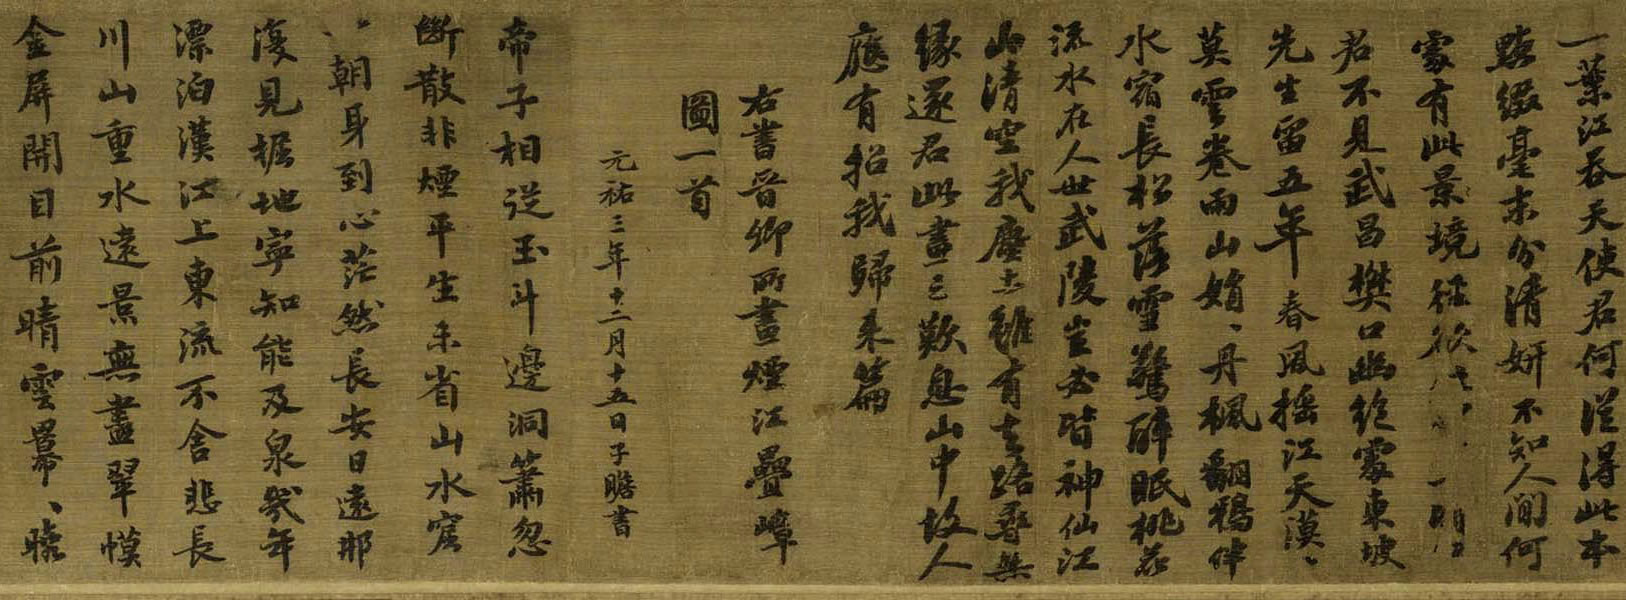 一葉江吞天使君何從得此本
點綴毫末分清妍不知人間何
處有此景境徑欲
君不見武昌樊口幽絕處東坡
先生留五年春風搖江天漠、
莫雲卷雨山娟、丹楓翻鵶伴
水宿長松落雪驚醉眠桃花
流水在人世武陵豈必皆神仙江
山清空我塵土雖有去路尋無
緣還君此畫三歎息山中故人
應有招我歸來篇
右書晉卿所畫煙江疊嶂
圖一首
元祐三年十二月十五日子瞻書
帝子相從玉斗邊洞簫忽
斷散非煙平生未省山水窟
一朝身到心茫然長安日遠那
復見掘地寧知能及泉幾年
漂泊漢江上東流不舍悲長
川山重水遠景無盡翠幙
金屏開目前晴雲羃、曉